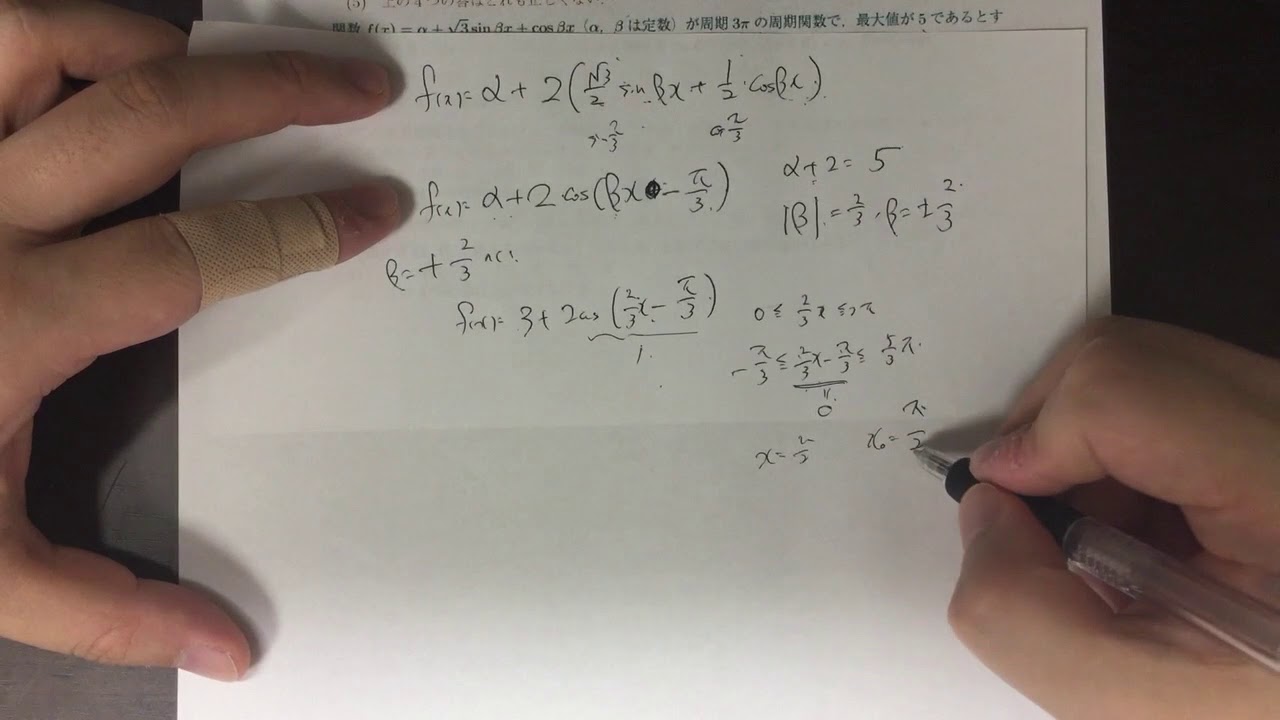 (5) 上の4つの答はどれも正しくない.
関数 f(x) = α + √3 sin βx + cos βx (α, β は定数) が周期 3π の周期関数で, 最大値が 5 であるとす
f(x)= α + 2(√3/2 sin βx + 1/2 · cos βx)
π/3
π/3
f(x)= α + 2 cos(βx - π/3)
α + 2 = 5
|β| = 2/3, β = ± 2/3
β = + 2/3
f(x)= 3 + 2 cos(2/3 x - π/3)
1
0 ≤ 2/3 x ≤ 2π
- π/3 ≤ 2/3 x - π/3 ≤ 5/3 π
0
x =
x₀ = π/2